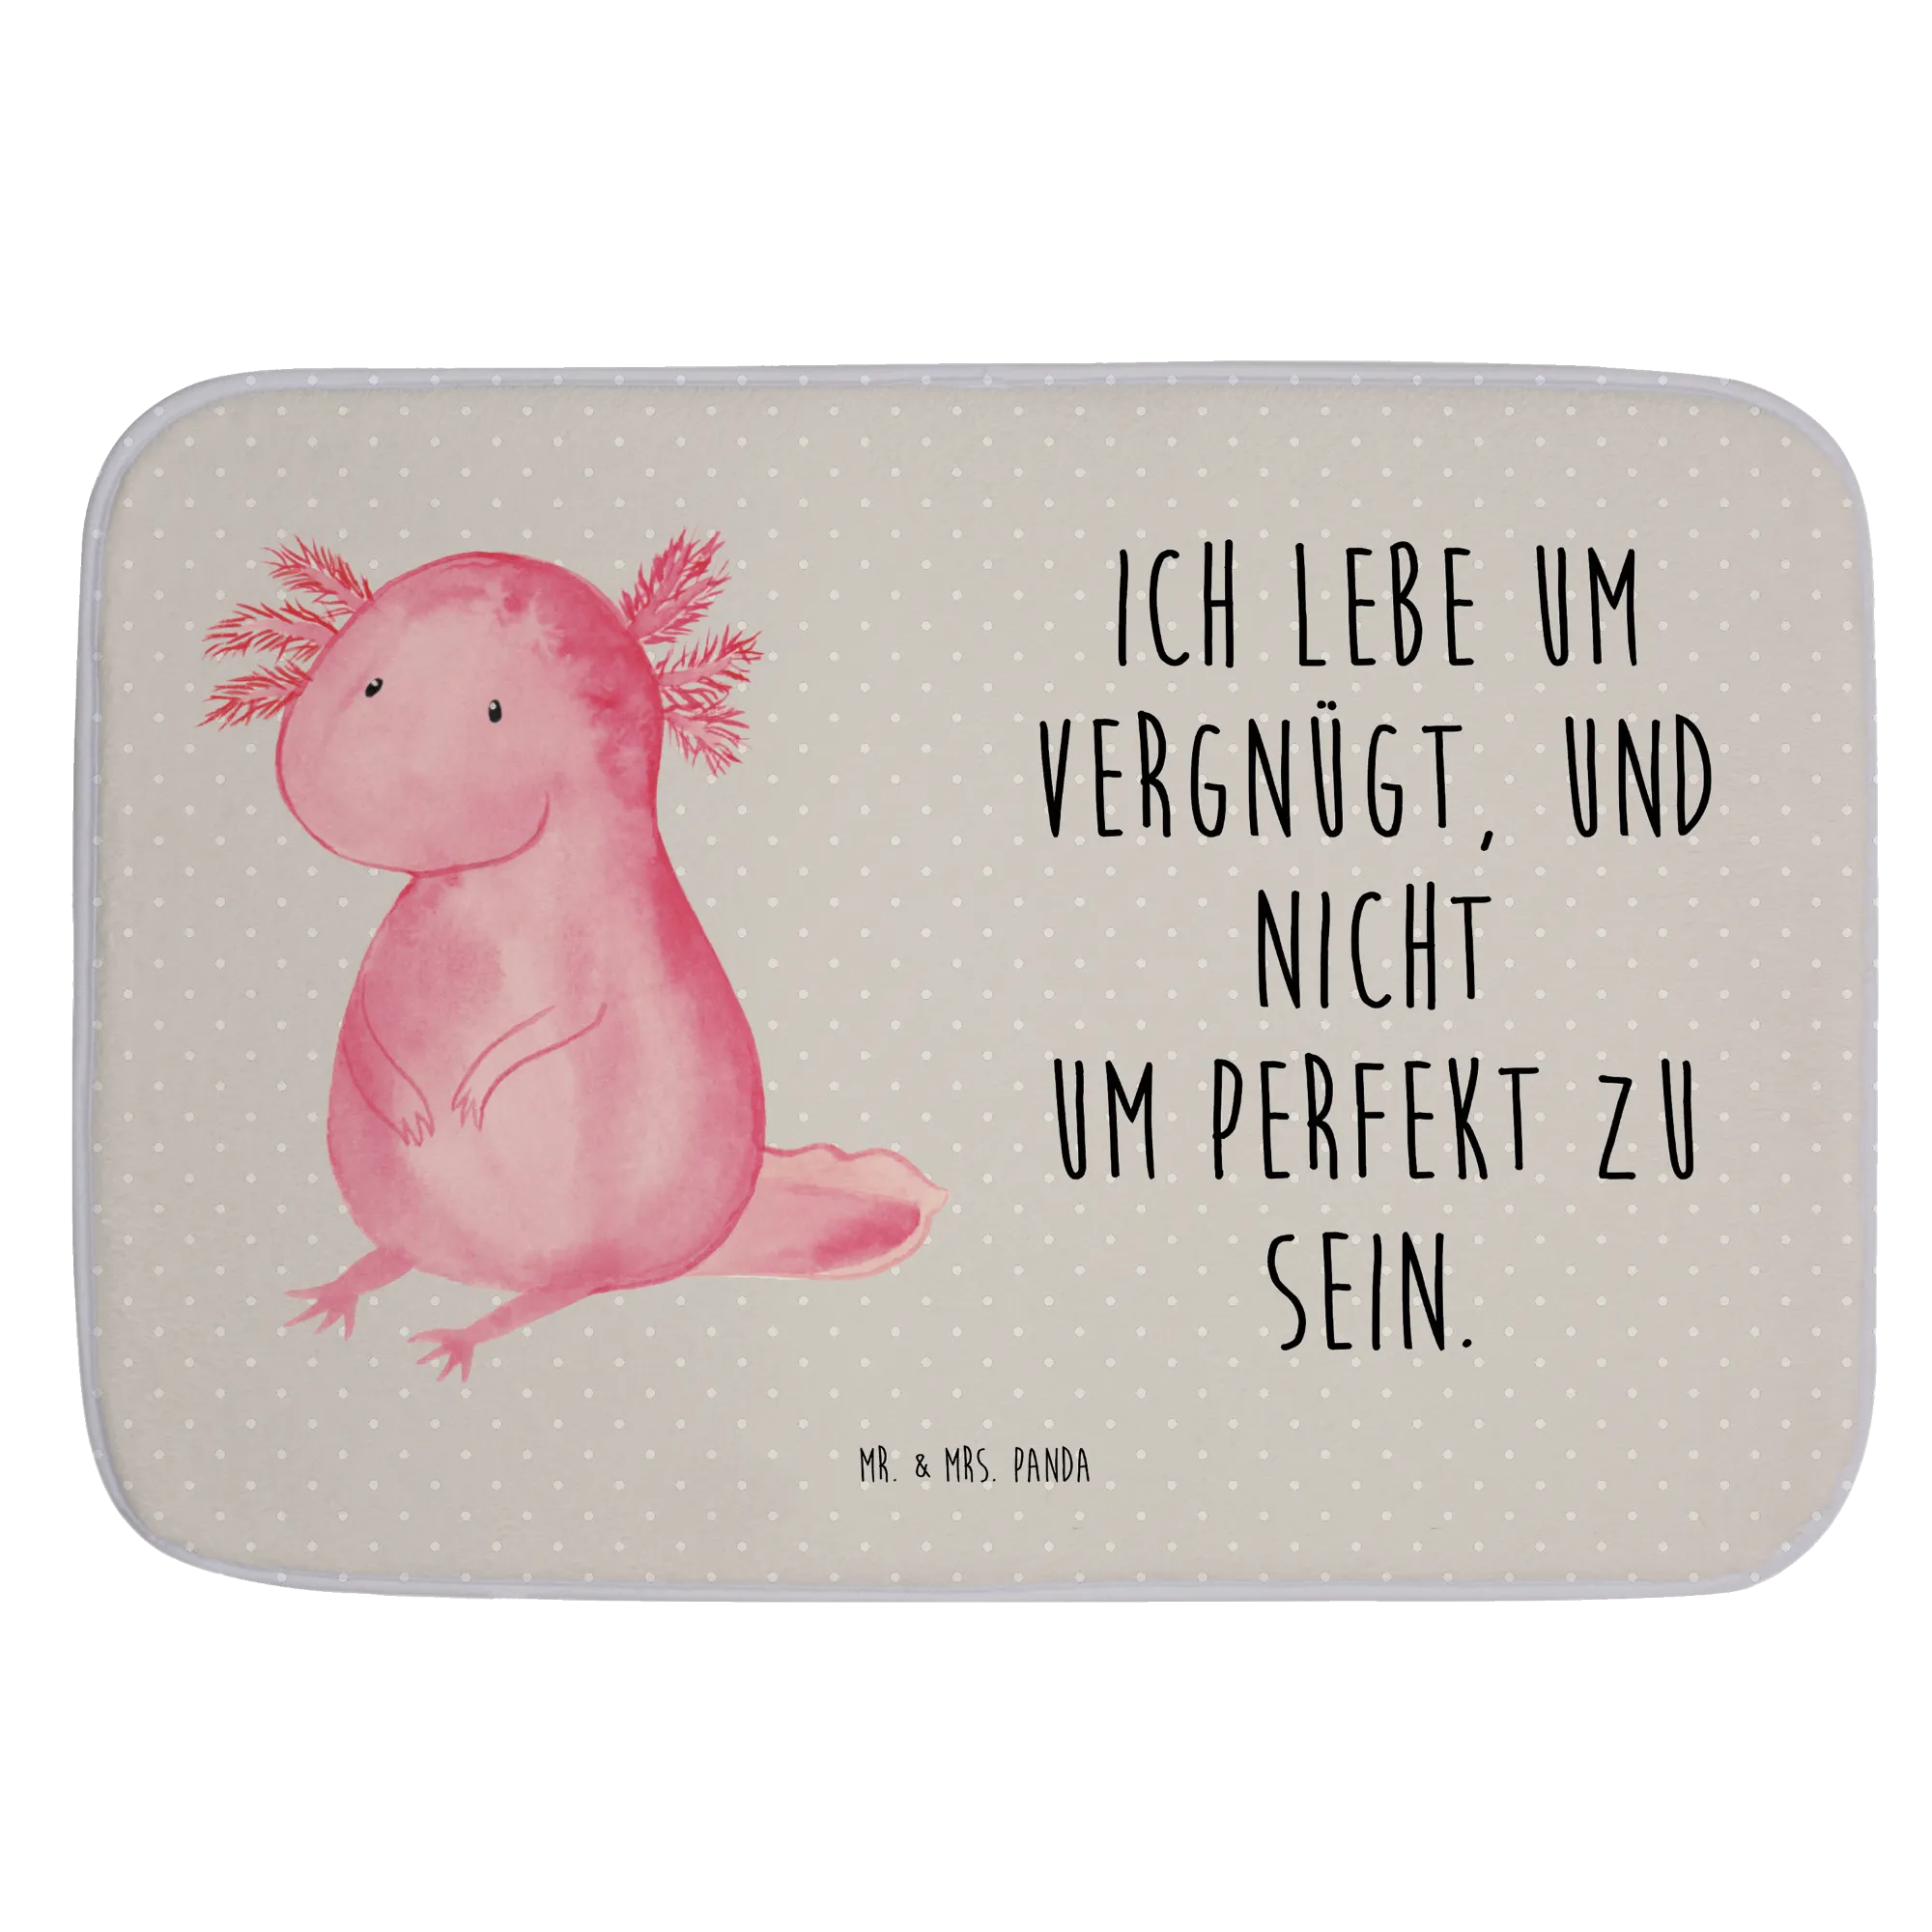 ICH LEBE UM
VERGNÜGT, UND
NICHT
UM PERFEKT ZU
SEIN.
MR. & MRS. PANDA